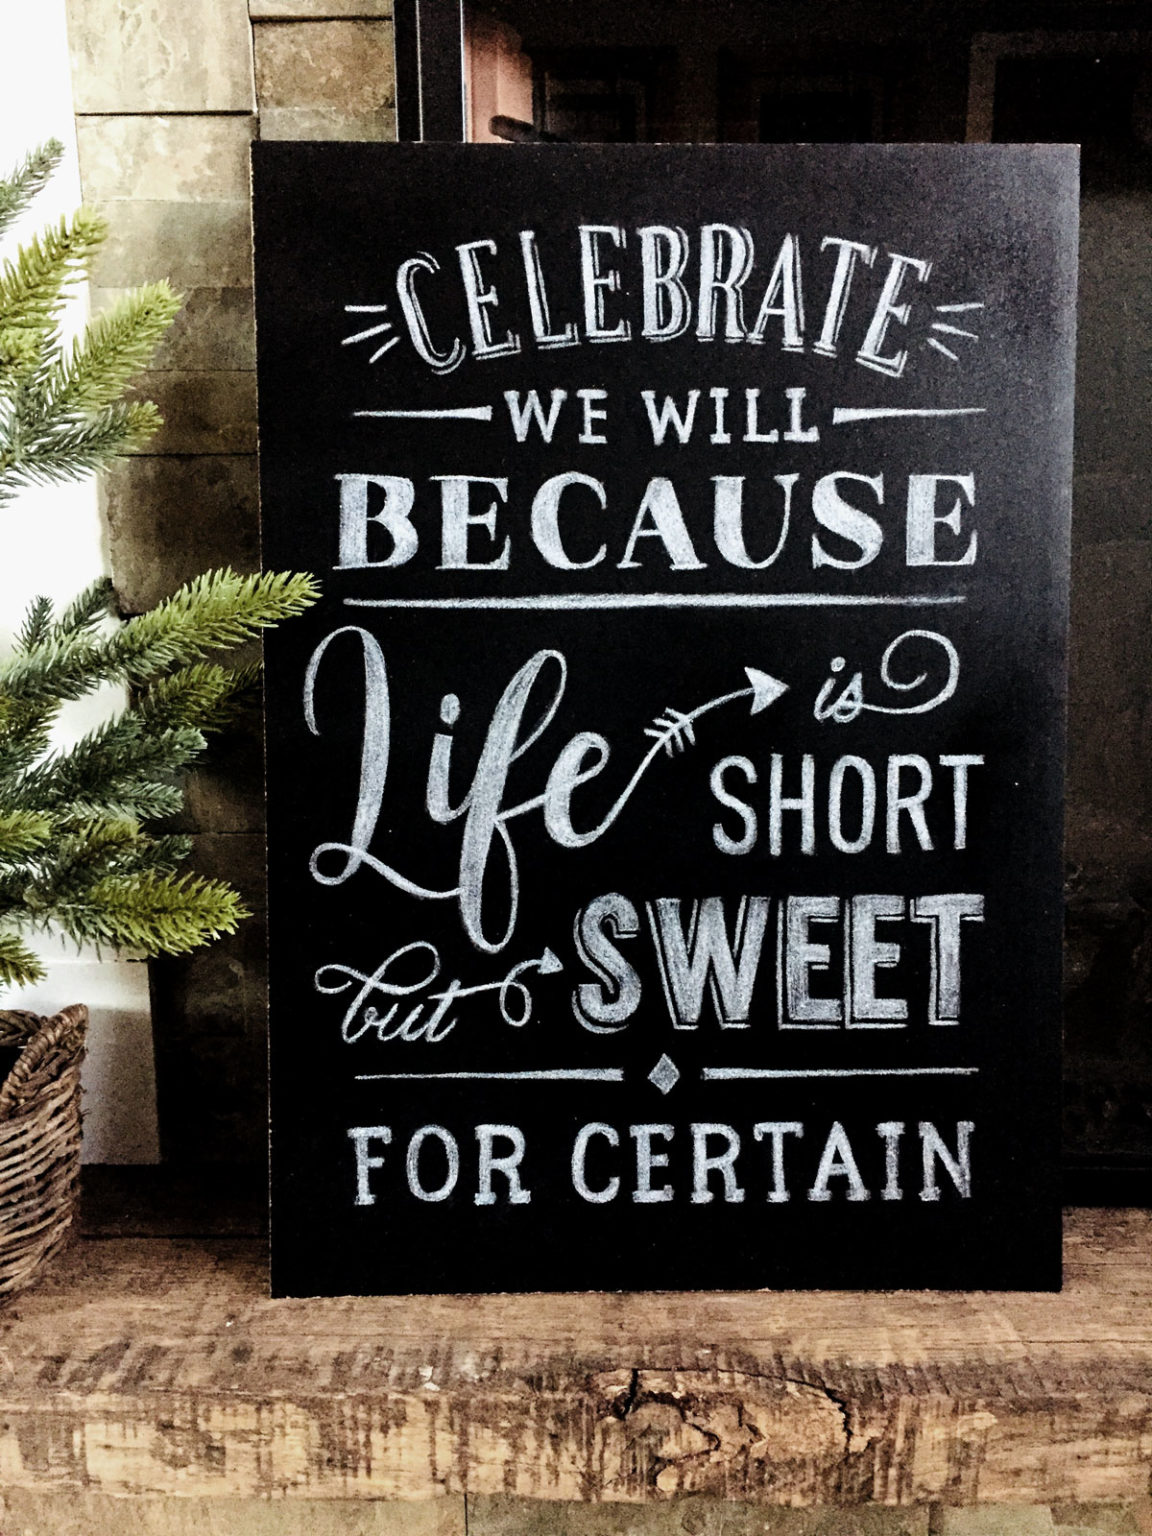 CELEBRATE
WE WILL
BECAUSE
Life is
SHORT
but SWEET
FOR CERTAIN